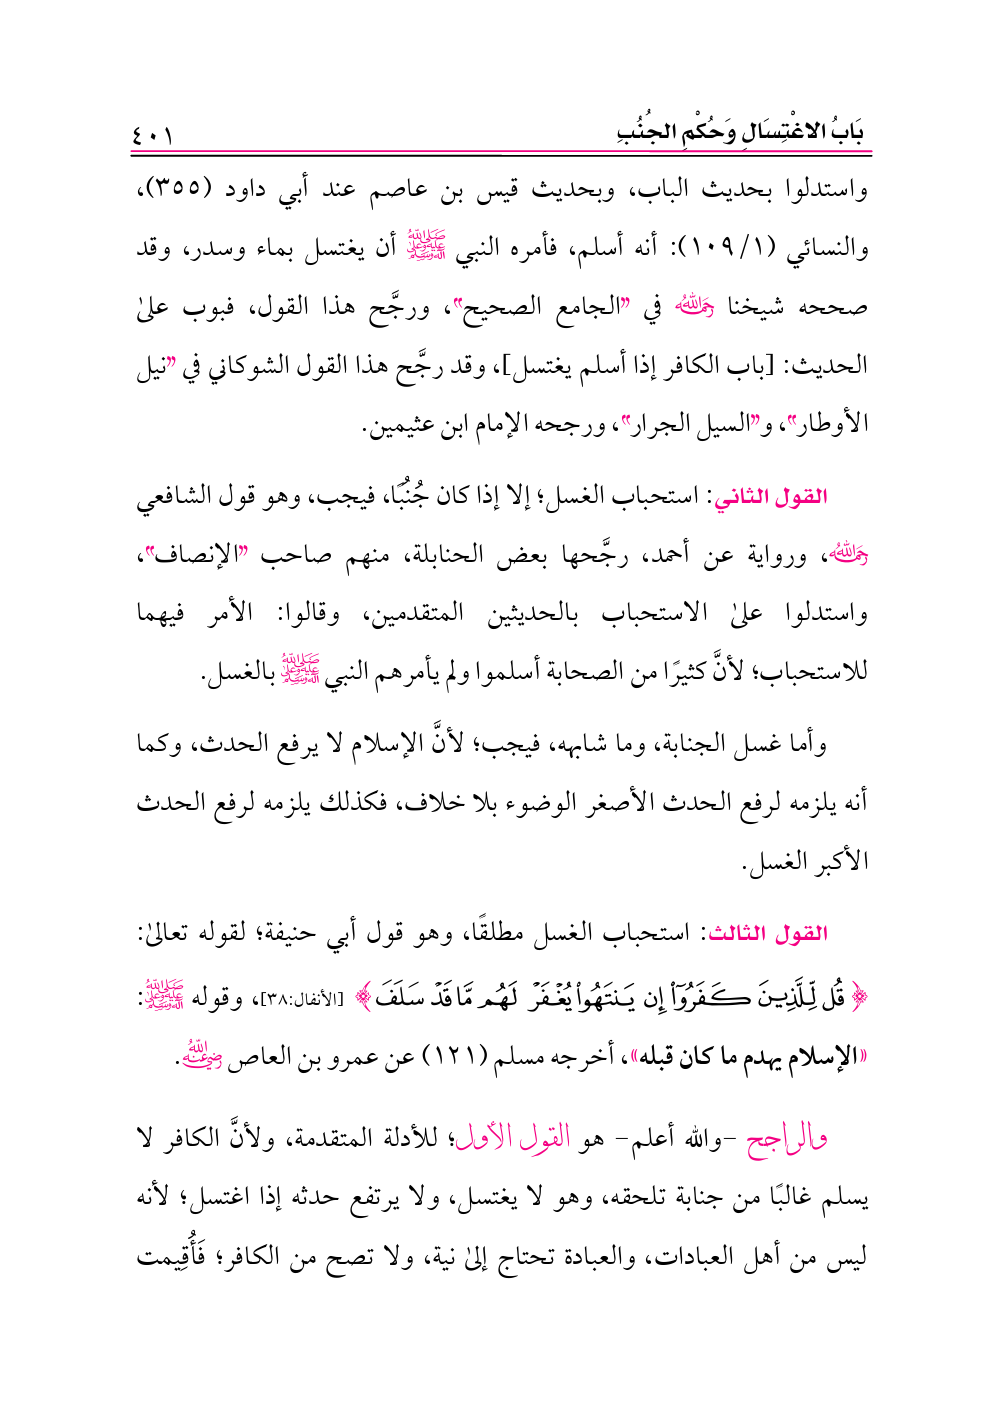 بَابُ الاغْتِسَالِ وَحُكْمِ الجُنُبِ
٤٠١
واستدلوا بحديث الباب، وبحديث قيس بن عاصم عند أبي داود (٣٥٥)،
والنسائي (١/ ١٠٩): أنه أسلم، فأمره النبي ﷺ أن يغتسل بماء وسدر، وقد
صححه شيخنا رحمه الله في "الجامع الصحيح"، ورجَّح هذا القول، فبوب علىٰ
الحديث: [باب الكافر إذا أسلم يغتسل]، وقد رجَّح هذا القول الشوكاني في "نيل
الأوطار"، و"السيل الجرار"، ورجحه الإمام ابن عثيمين.
القول الثاني: استحباب الغسل؛ إلا إذا كان جُنُبًا، فيجب، وهو قول الشافعي
رحمه الله، ورواية عن أحمد، رجَّحها بعض الحنابلة، منهم صاحب "الإنصاف"،
واستدلوا علىٰ الاستحباب بالحديثين المتقدمين، وقالوا: الأمر فيهما
للاستحباب؛ لأنَّ كثيرًا من الصحابة أسلموا ولم يأمرهم النبي ﷺ بالغسل.
وأما غسل الجنابة، وما شابهه، فيجب؛ لأنَّ الإسلام لا يرفع الحدث، وكما
أنه يلزمه لرفع الحدث الأصغر الوضوء بلا خلاف، فكذلك يلزمه لرفع الحدث
الأكبر الغسل.
القول الثالث: استحباب الغسل مطلقًا، وهو قول أبي حنيفة؛ لقوله تعالىٰ:
﴿قُل لِّلَّذِينَ كَفَرُوٓاْ إِن يَنتَهُواْ يُغْفَرْ لَهُم مَّا قَدْ سَلَفَ﴾ [الأنفال:٣٨]، وقوله ﷺ:
«الإسلام يهدم ما كان قبله»، أخرجه مسلم (١٢١) عن عمرو بن العاص رضي الله عنه.
والراجح -والله أعلم- هو القول الأول؛ للأدلة المتقدمة، ولأنَّ الكافر لا
يسلم غالبًا من جنابة تلحقه، وهو لا يغتسل، ولا يرتفع حدثه إذا اغتسل؛ لأنه
ليس من أهل العبادات، والعبادة تحتاج إلىٰ نية، ولا تصح من الكافر؛ فَأُقِيمت